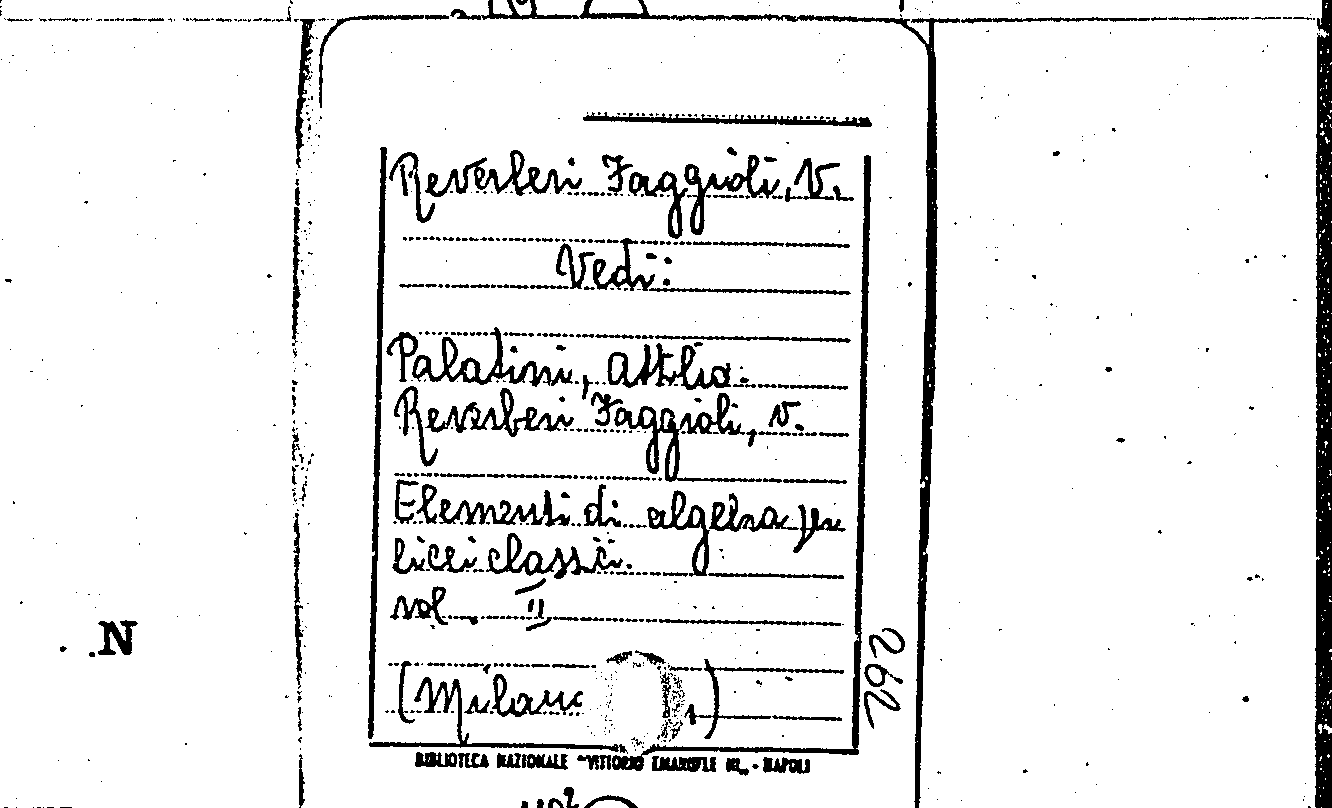 Reverberi Faggioli, V.
Vedi:
Palatini, Attilio.
Reverberi Faggioli, V.
Elementi di algebra per
licei classici.
vol. II
(Milano 1)
BIBLIOTECA NAZIONALE "VITTORIO EMANUELE III" - NAPOLI
N
262